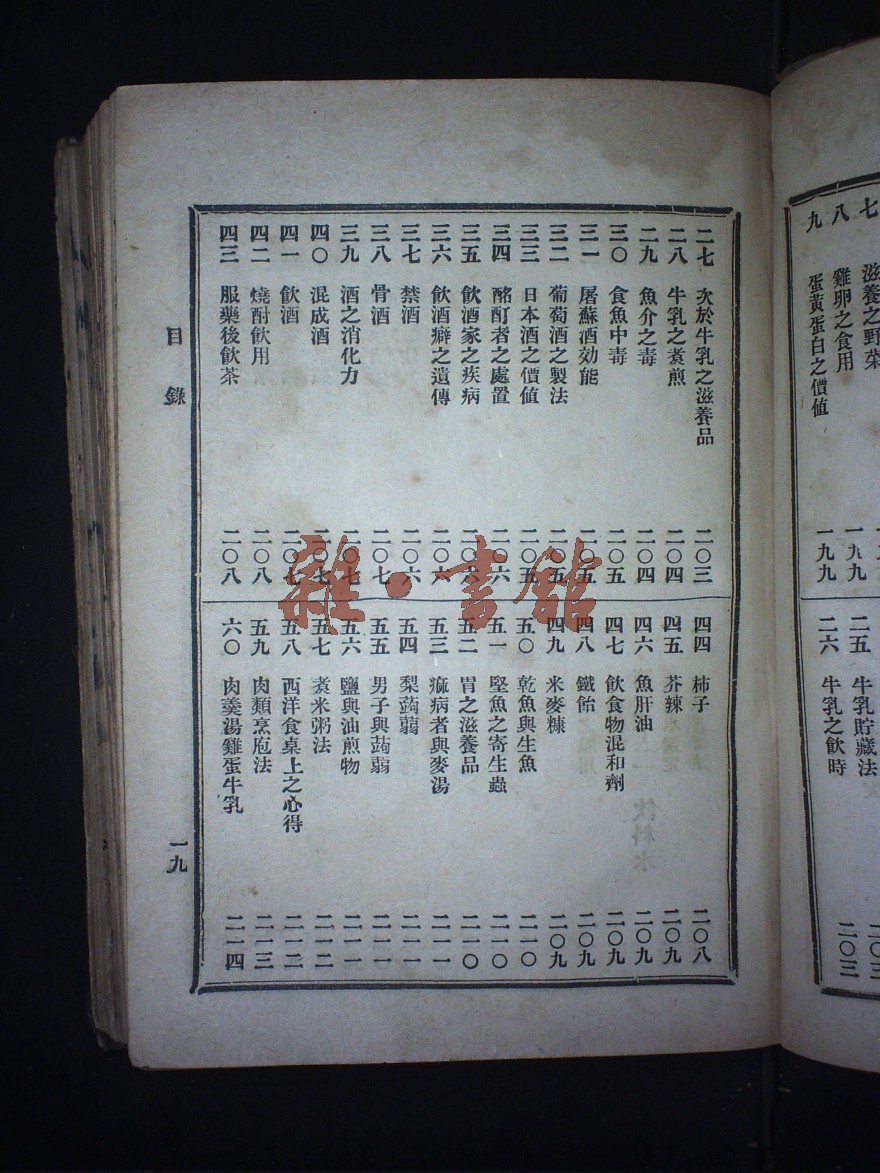 七
滋養之野菜
八
雞卵之食用
一九九
九
蛋黃蛋白之價値
一九九
二五
牛乳貯藏法
二〇三
二六
牛乳之飲時
二〇三
二七 次於牛乳之滋養品 二〇三
二八 牛乳之煑煎 二〇四
二九 魚介之毒 二〇四
三〇 食魚中毒 二〇五
三一 屠蘇酒効能 二〇五
三二 葡萄酒之製法 二〇五
三三 日本酒之價値 二〇五
三四 酩酊者之處置 二〇六
三五 飮酒家之疾病 二〇六
三六 飮酒癖之遺傳 二〇六
三七 禁酒 二〇六
三八 骨酒 二〇七
三九 酒之消化力 二〇七
四〇 混成酒 二〇七
四一 飮酒 二〇七
四二 燒酎飮用 二〇八
四三 服藥後飮茶 二〇八
四四 柿子 二〇八
四五 芥辣 二〇九
四六 魚肝油 二〇九
四七 飮食物混和劑 二〇九
四八 鐵飴 二〇九
四九 米麥糠 二〇九
五〇 乾魚與生魚 二一〇
五一 堅魚之寄生蟲 二一〇
五二 胃之滋養品 二一〇
五三 痲病者與麥湯 二一一
五四 梨蒟蒻 二一一
五五 男子與蒟蒻 二一一
五六 鹽與油煎物 二一一
五七 煑米粥法 二一二
五八 西洋食桌上之心得 二一二
五九 肉類烹庖法 二一三
六〇 肉羹湯雞蛋牛乳 二一四
目錄
一九
雜·書館